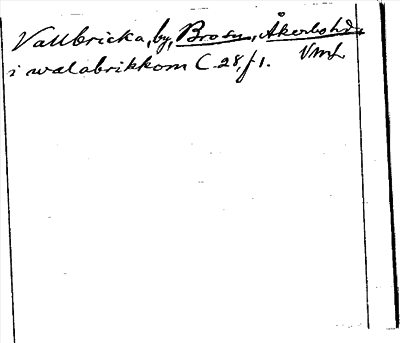 Vallbricka, by, Bro sn, Åkerbo hd,
Vml.
i walabrikkom C 28, f 1.